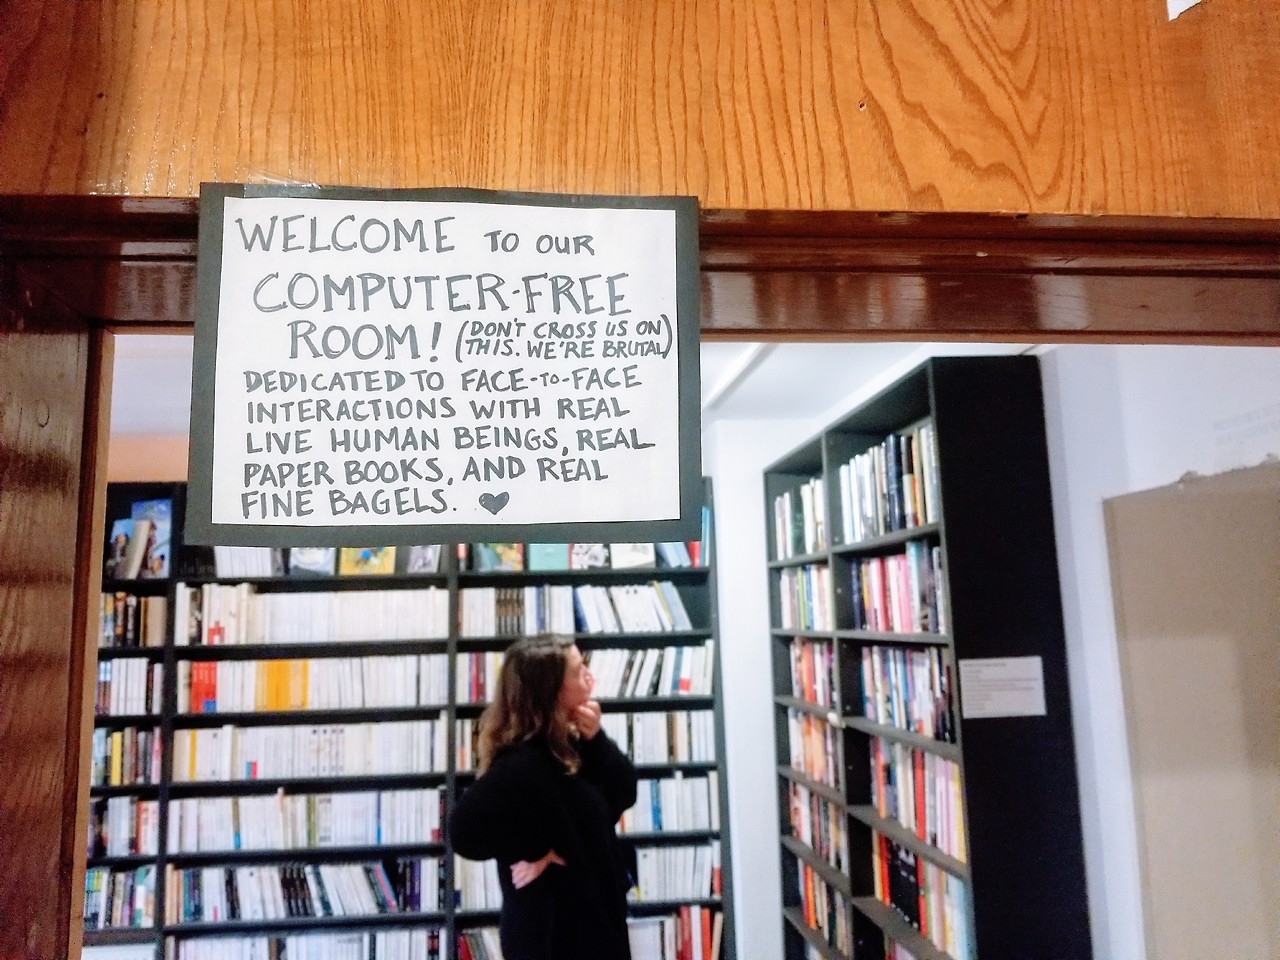 WELCOME TO OUR
COMPUTER-FREE
ROOM! (DON'T CROSS US ON
THIS. WE'RE BRUTAL)
DEDICATED TO FACE-TO-FACE
INTERACTIONS WITH REAL
LIVE HUMAN BEINGS, REAL
PAPER BOOKS, AND REAL
FINE BAGELS. ♥